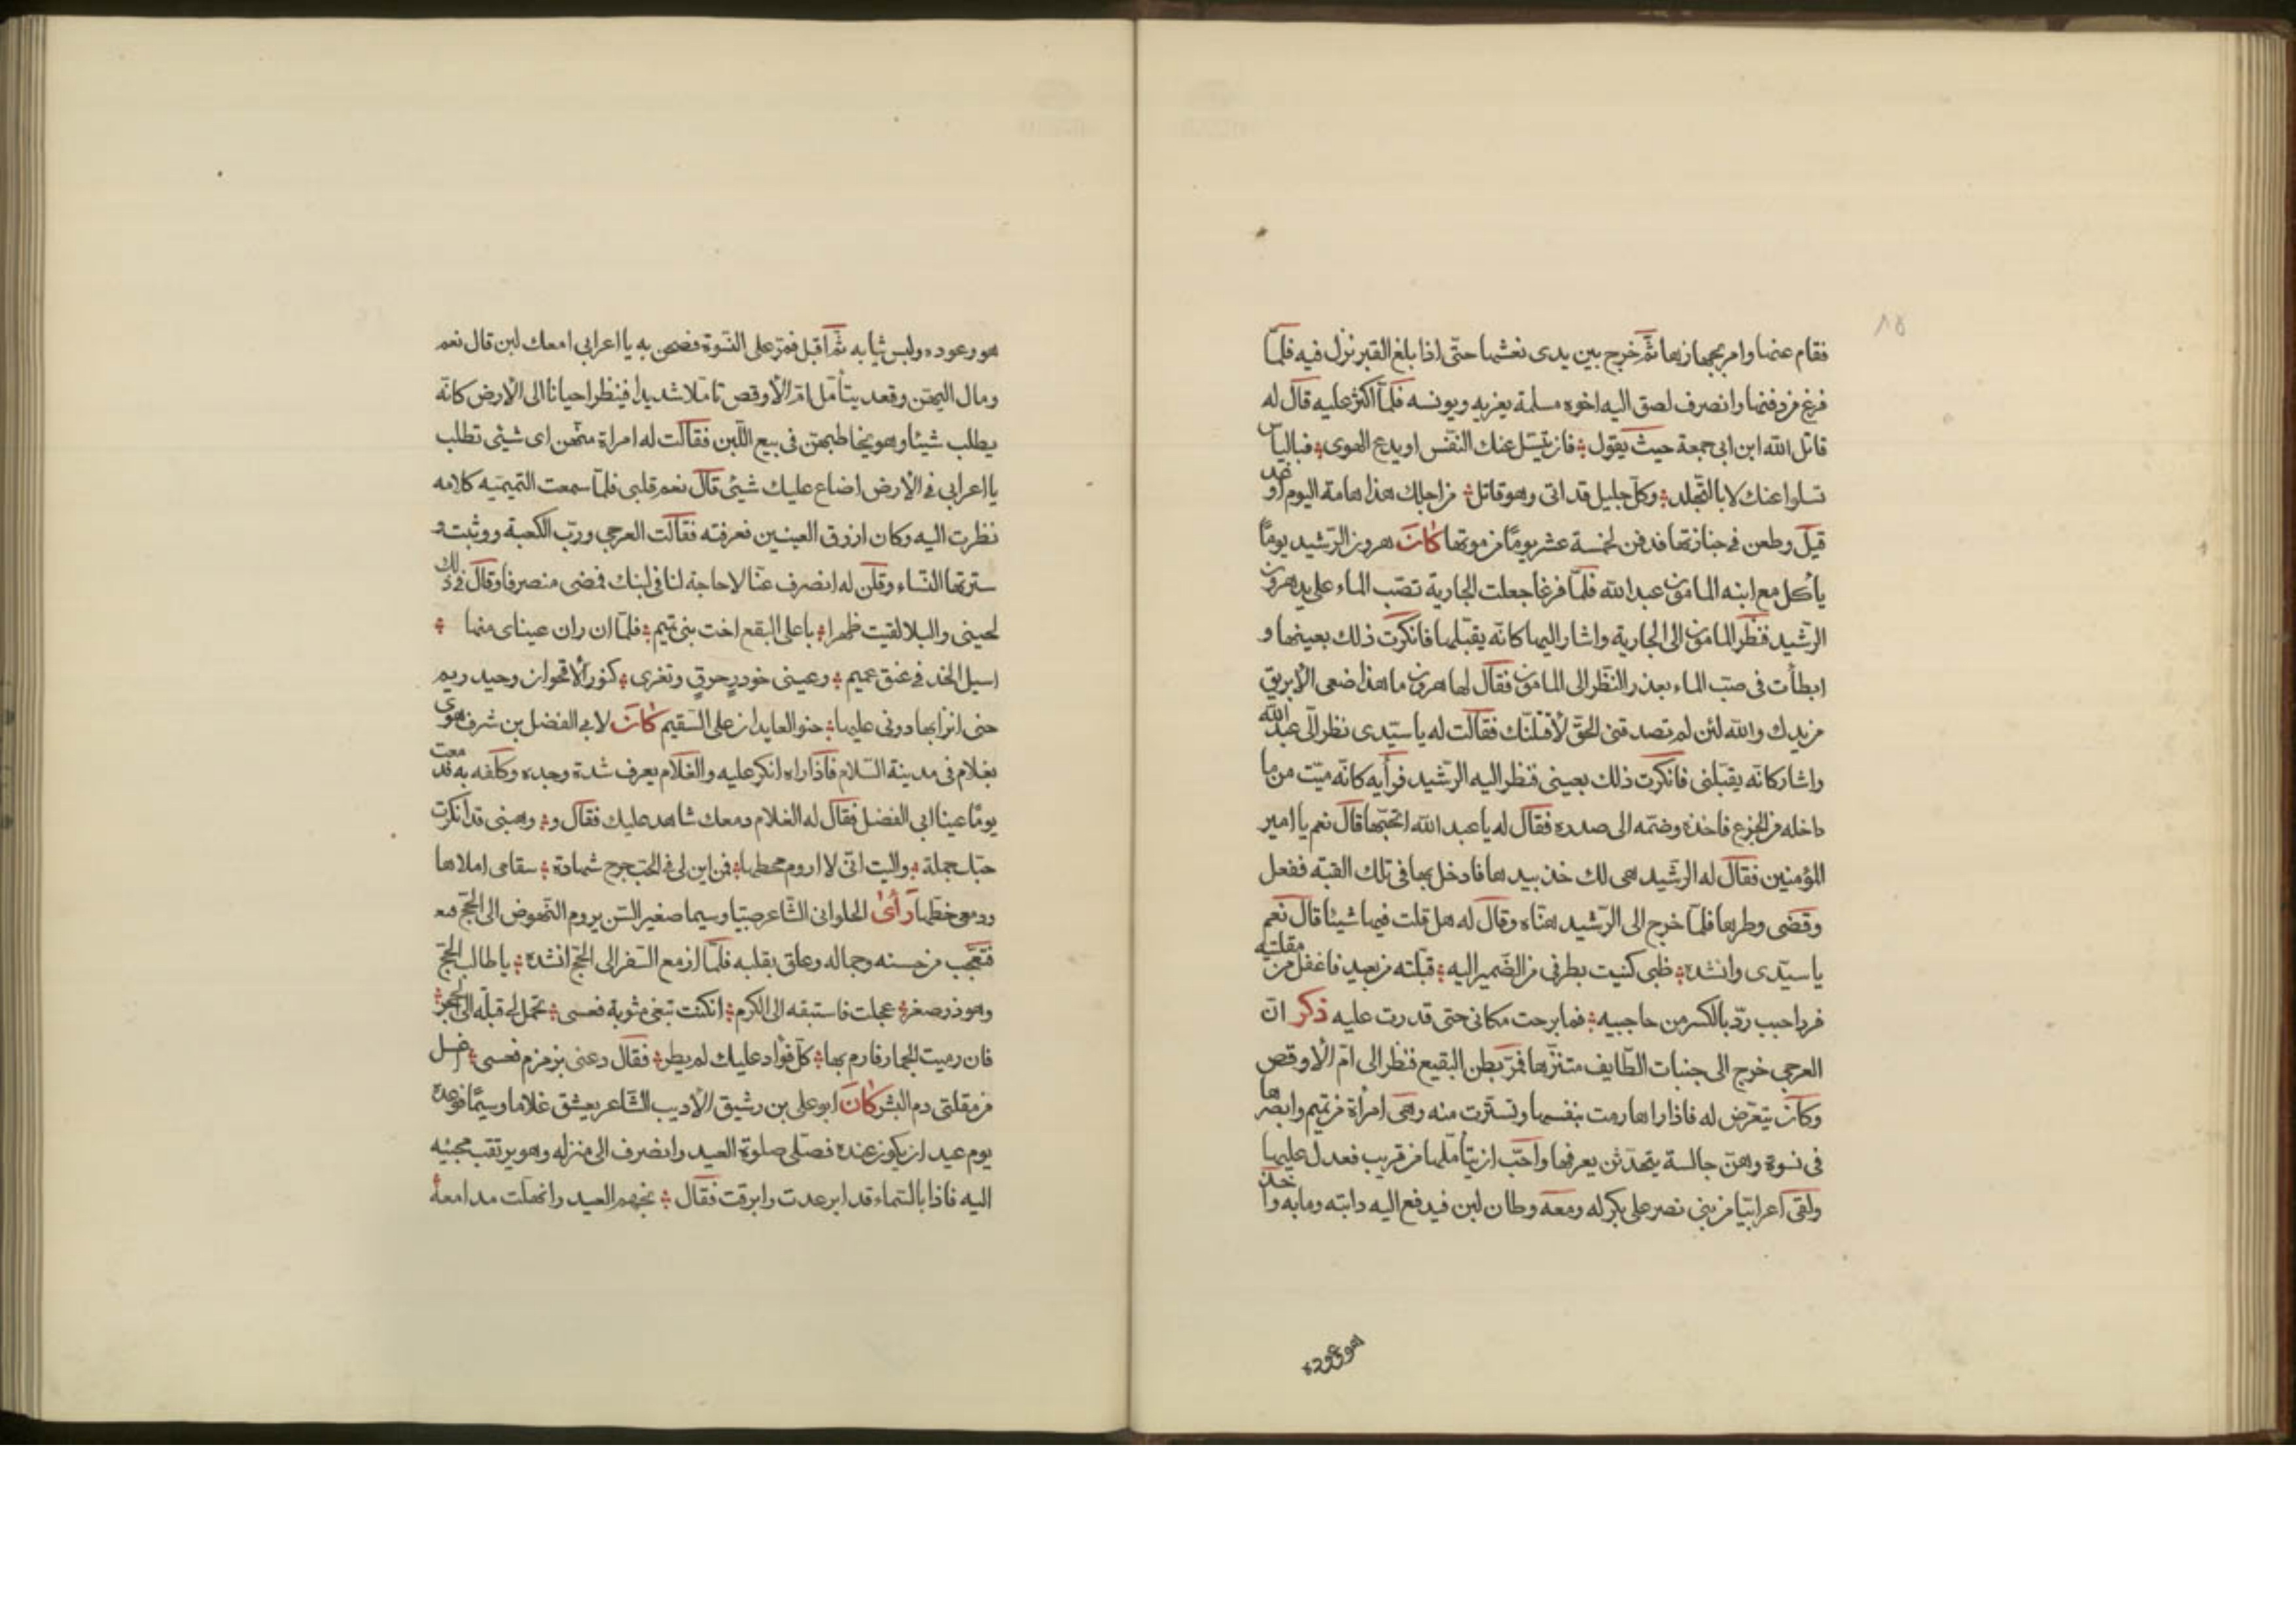 ١٥
فقام عنها وامر بجهازها ثم خرج بين يدى نعشها حتى اذا بلغ القبر نزل فيه فلما
فرغ من دفنها وانصرف لصق اليه اخوه مسلمة يعزيه ويونسه فلما اكثر عليه قال له
قاتل الله ابن ابى جمعة حيث يقول فان تسل عنك النفس او يدع الهوى فباليأس
تسلوا عنك لا بالتجلد وكل جليل قد اتى وهو قائل من اجلك هذا هامة اليوم او غد
قيل وطعن فى جنازتها فدفن لخمسة عشر يوما من موتها كان هرون الرشيد يوما
يأكل مع ابنه المامون عبد الله فلما فرغا جعلت الجارية تصب الماء على يد هرون
الرشيد فنظر المامون الى الجارية واشار اليها كانه يقبلها فانكرت ذلك بعينها و
ابطأت فى صب الماء بعذر النظر الى المامون فقال لها هرون ما هذا ضعى الابريق
من يدك والله لئن لم تصدقنى الحق لاقتلنك فقالت له يا سيدى نظر الى عبد الله
واشار كانه يقبلنى فانكرت ذلك بعينى فنظر اليه الرشيد فرأيه كانه ميت من ما
داخله من الجزع فاخذه وضمه الى صدره فقال له يا عبد الله اتحبها قال نعم يا امير
المؤمنين فقال له الرشيد هى لك خذ بيدها فادخل بها فى تلك القبة ففعل
وقضى وطرها فلما خرج الى الرشيد هناه وقال له هل قلت فيها شيئا قال نعم
يا سيدى وانشده ظبى كنيت بطرفى من الضمير اليه قبلته من بعيد فاغفل من مقلتيه
فرد احبب رد بالكسر من حاجبيه فما برحت مكانى حتى قدرت عليه ذكر ان
العرجى خرج الى جنبات الطايف متنزها فمر ببطن البقيع فنظر الى ام الاوقص
وكان يتعرض له فاذا راها رمت بنفسها وتسترت منه وهى امرأة من تميم وابصرها
فى نسوة وهن جالسة يتحدثن يعرفها واحب ان يتأملها من قريب فعدل عليها
ولقى اعرابيا من بنى نصر على بكر له ومعه وطان لبن فيدفع اليه دابته ومابه واخذ
هو وعوده
هو وعوده ولبس ثيابه ثم اقبل فمر على النسوة فصحن به يا اعرابى امعك لبن قال نعم
ومال اليهن وقعد يتأمل ام الاوقص تاملا شديدا فينظر احيانا الى الارض كانه
يطلب شيئا وهو يخاطبهن فى بيع اللبن فقالت له امراة منهن اى شيئى تطلب
يا اعرابى فى الارض اضاع عليك شيئى قال نعم قلبى فلما سمعت التميمية كلامه
نظرت اليه وكان ازرق العينين فعرفته فقالت العرجى ورب الكعبة ووثبت و
سترتها النساء وقلن له انصرف عنا لا حاجة لنا فى لبنك فمضى منصرفا وقال فى ذلك
لحينى والبلا لقيت ظهرا باعلى البقع اخت بنى تميم فلما ان ران عيناى منها
اسيل الخد فى عنق عميم وعينى خودر حرق وثغرى كنور الاقحوان وجيد ريم
حنى اترابها دونى عليها حنو العايدات على السقيم كان لابى الفضل بن شرف هوى
بغلام فى مدينة السلام فاذا راه انكر عليه والغلام يعرف شدة وجده وكلفه به فدمعت
يوما عينا ابى الفضل فقال له الغلام دمعك شاهد عليك فقال و وهبنى قد انكرت
حبك جملة واليت انى لا اروم محطها فمن اين لى فى الحب جرح شهادة سقامى املاها
ودمعى خطها رأى الحلوانى الشاعر صبيا وسيما صغير السن يروم النهوض الى الحج معه
فتعجب من حسنه وجماله وعلق بقلبه فلما ازمع السفر الى الحج انشده يا طالب الحج
وهو ذو صغر عجلت فاستبقه الى الكرم ان كنت تبغى مثوبة فعسى تحمل لى قبلة الى الحجر
فان رميت الجمار فارم بها كل فؤاد عليك لم يطر فقال دعنى بزمزم فعسى اغسل
من مقلتى دم البشر كان ابو على بن رشيق الاديب الشاعر يعشق غلاما وسيما فوعده
يوم عيد ان يكون عنده فصلى صلوة العيد وانصرف الى منزله وهو يرتقب مجيئه
اليه فاذا بالسماء قد ابرعدت وابرقت فقال تجهم العيد وانهلت مدامعه